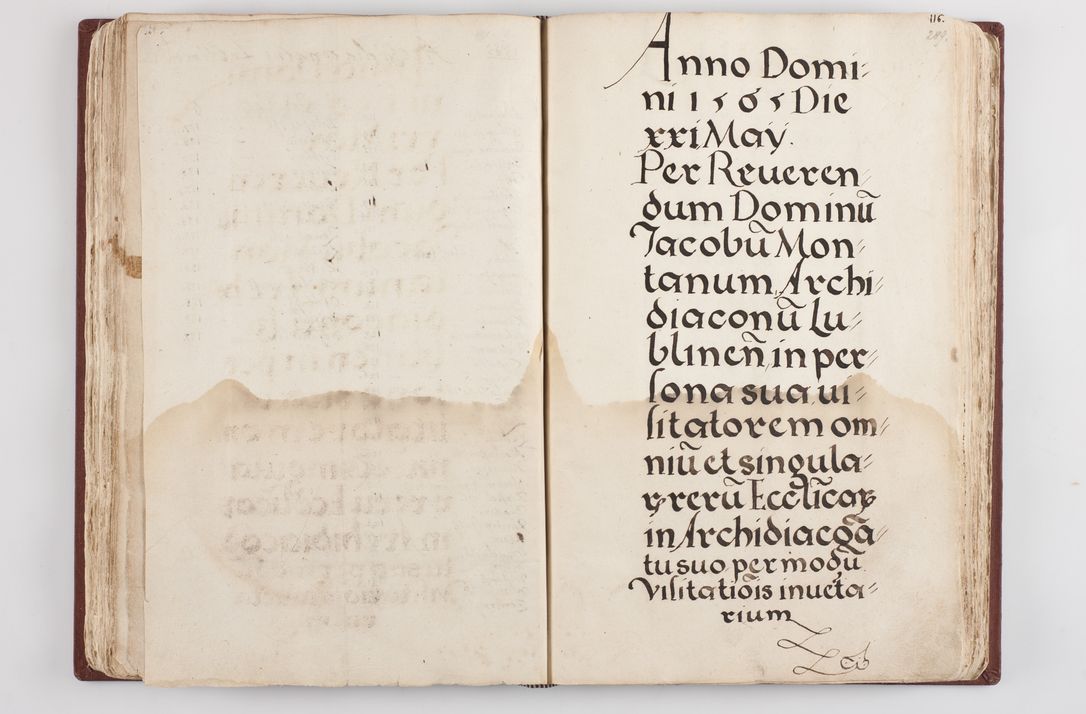 116.
289.
Anno Domi⸗
ni 1565 Die
xxi Maÿ.
Per Reueren⸗
dum Dominū
Jacobū Mon⸗
tanum Archi⸗
diaconū Lu⸗
blineñ, in per⸗
sona sua ui⸗
sitatorem om⸗
niū et singula⸗
rꝝ rerū Eccl̄icaꝝ
in Archidiacōa⸗
tu suo per modū
Visitatiōis inuēta⸗
rium